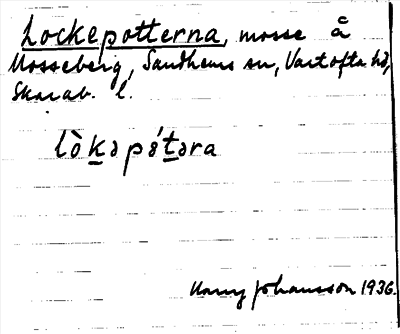 Lockepotterna, mosse å
Mosseberg, Sandhems sn, Vartofta hd,
Skarab. l.
lò̀k̲əpə́t̲əra
Harry Johansson 1936.